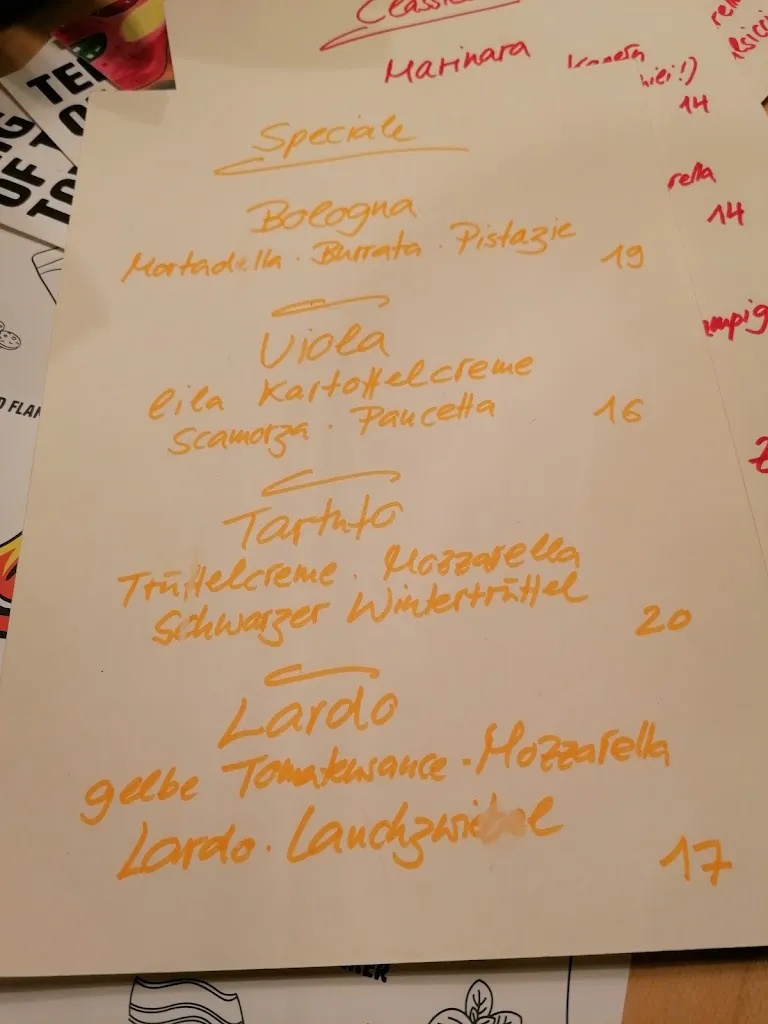 Classic
Marinara
hiei!)
14
rella
14
mpig
TE
OF
D FLA
Speciale
Bologna
Mortadella · Burrata · Pistazie 19
Viola
lila Kartoffelcreme
Scamorza · Pancetta 16
Tartufo
Trüffelcreme · Mozzarella
Schwarzer Wintertrüffel 20
Lardo
gelbe Tomatensauce · Mozzarella
Lardo · Lauchzwiebel 17
KER